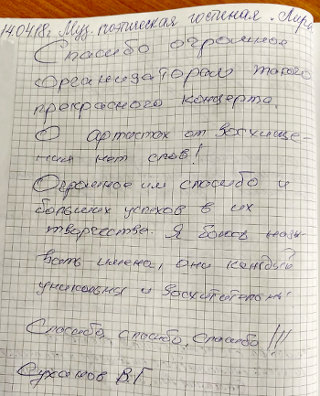 14.04.18г. Муз. поэтическая гостиная "Лира
Спасибо огромное
организаторам такого
прекрасного концерта,
О артистах от восхище-
ния нет слов!
Огромное им спасибо и
больших успехов в их
творчестве. Я боюсь назы-
вать имена, они каждый
уникальны и восхитительны
Спасибо, спасибо, спасибо!!!
В.Г.